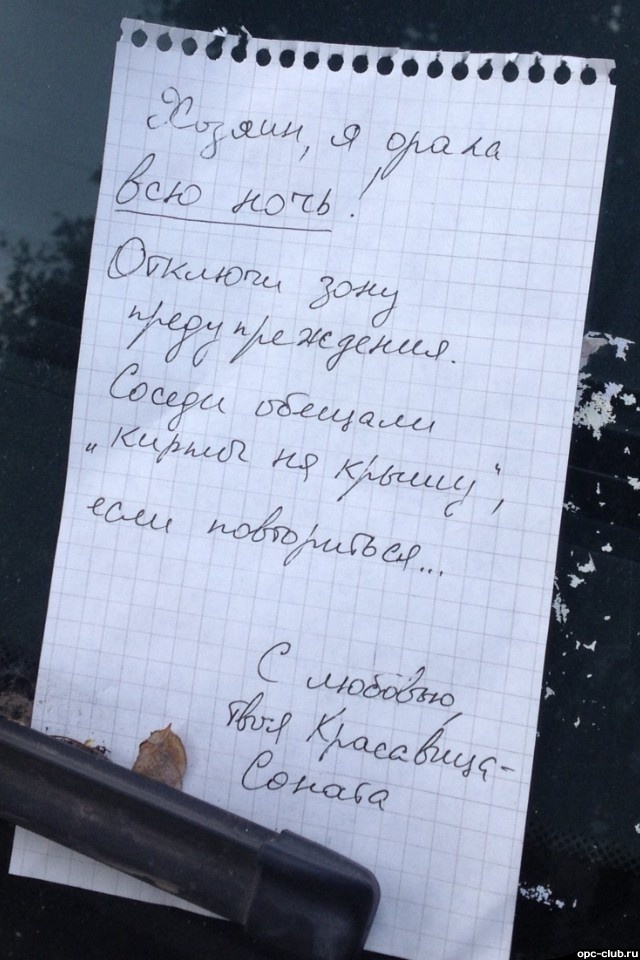 Хозяин, я орала
всю ночь!
Отключи зону
предупреждения.
Соседи обещали
„кирпич на крышу",
если повториться...
С любовью,
твоя Красавица-
Соната
opc-club.ru